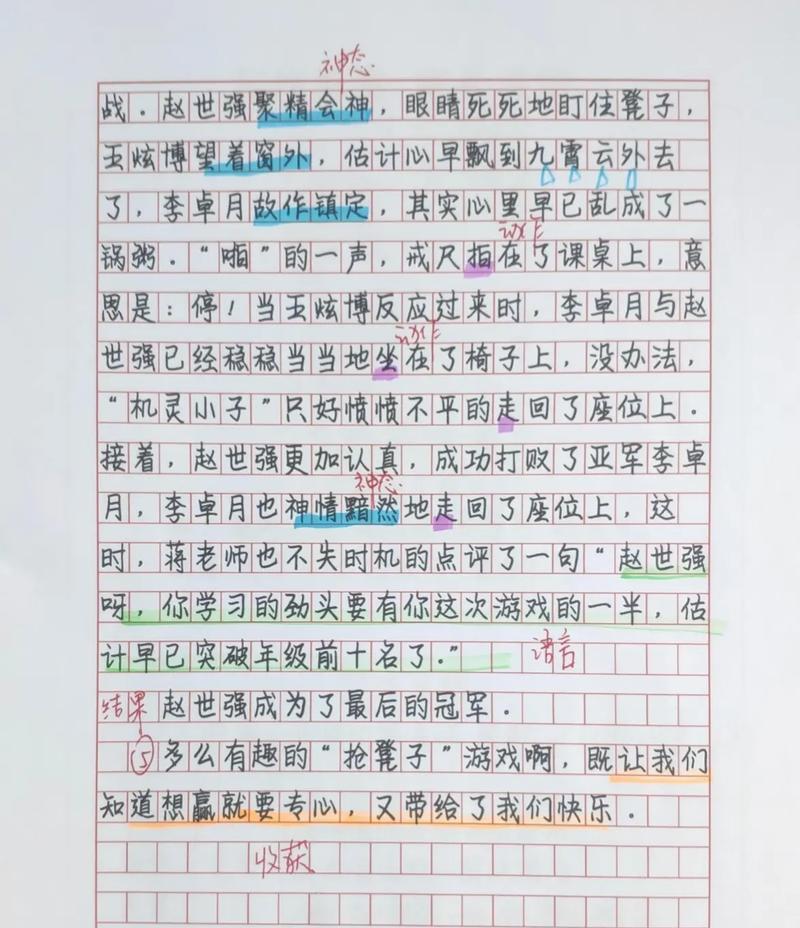 神态
战．赵世强聚精会神，眼睛死死地盯住凳子，
王炫博望着窗外，估计心早飘到九霄云外去
了，李卓月故作镇定，其实心里早已乱成了一
动作
锅粥．“啪”的一声，戒尺拍在了课桌上，意
思是：停！当王炫博反应过来时，李卓月与赵
动作
世强已经稳稳当当地坐在了椅子上，没办法，
“机灵小子”只好愤愤不平的走回了座位上．
接着，赵世强更加认真，成功打败了亚军李卓
神态
月，李卓月也神情黯然地走回了座位上，这
时，蒋老师也不失时机的点评了一句“赵世强
呀，你学习的劲头要有你这次游戏的一半，估
计早已突破年级前十名了．”
语言
结果 赵世强成为了最后的冠军．
⑤多么有趣的“抢凳子”游戏啊，既让我们
知道想赢就要专心，又带给了我们快乐．
收获